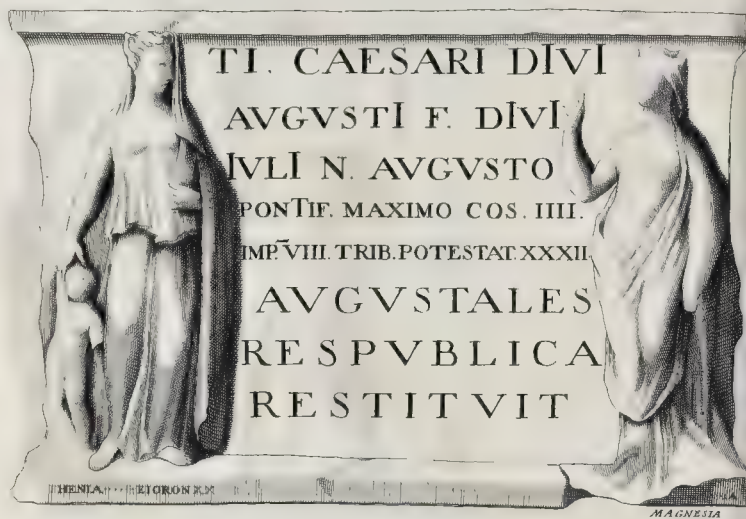 TI. CAESARI DIVI
AVGVSTI F. DIVI
IVLI N. AVGVSTO
PONTIF. MAXIMO COS. IIII.
IMP. VIII. TRIB. POTESTAT. XXXII
AVGVSTALES
RESPVBLICA
RESTITVIT
HENIA
MAGNESIA